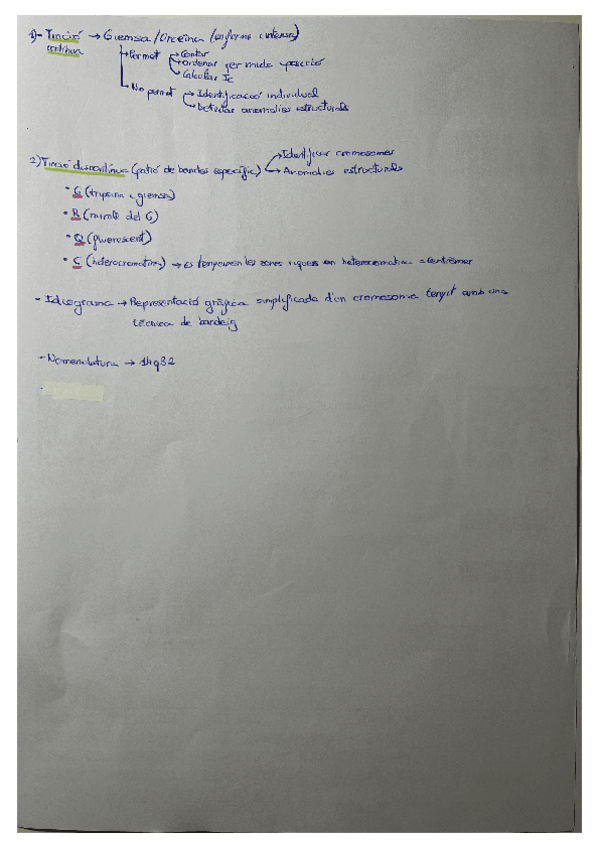 1)- Tinció → Giemsa/Orceïna (uniforme i intensa)
contínua
→ Permet → Contar
→ Ordenar per mida i posició
→ Calcular Ic
→ No permet → Identificació individual
→ Detectar anomalies estructurals
2) Tinció discontínua (patró de bandes específic) → Identificar cromosomes
→ Anomalies estructurals
• G (trypsina i giemsa)
• R (mirall del G)
• Q (fluorescent)
• C (heterocromatina) → es tenyeixen les zones riques en heterocromatina
- Idiograma → Representació gràfica simplificada d'un cromosoma tenyit amb una
tècnica de bandeig
- Nomenclatura → 14q32